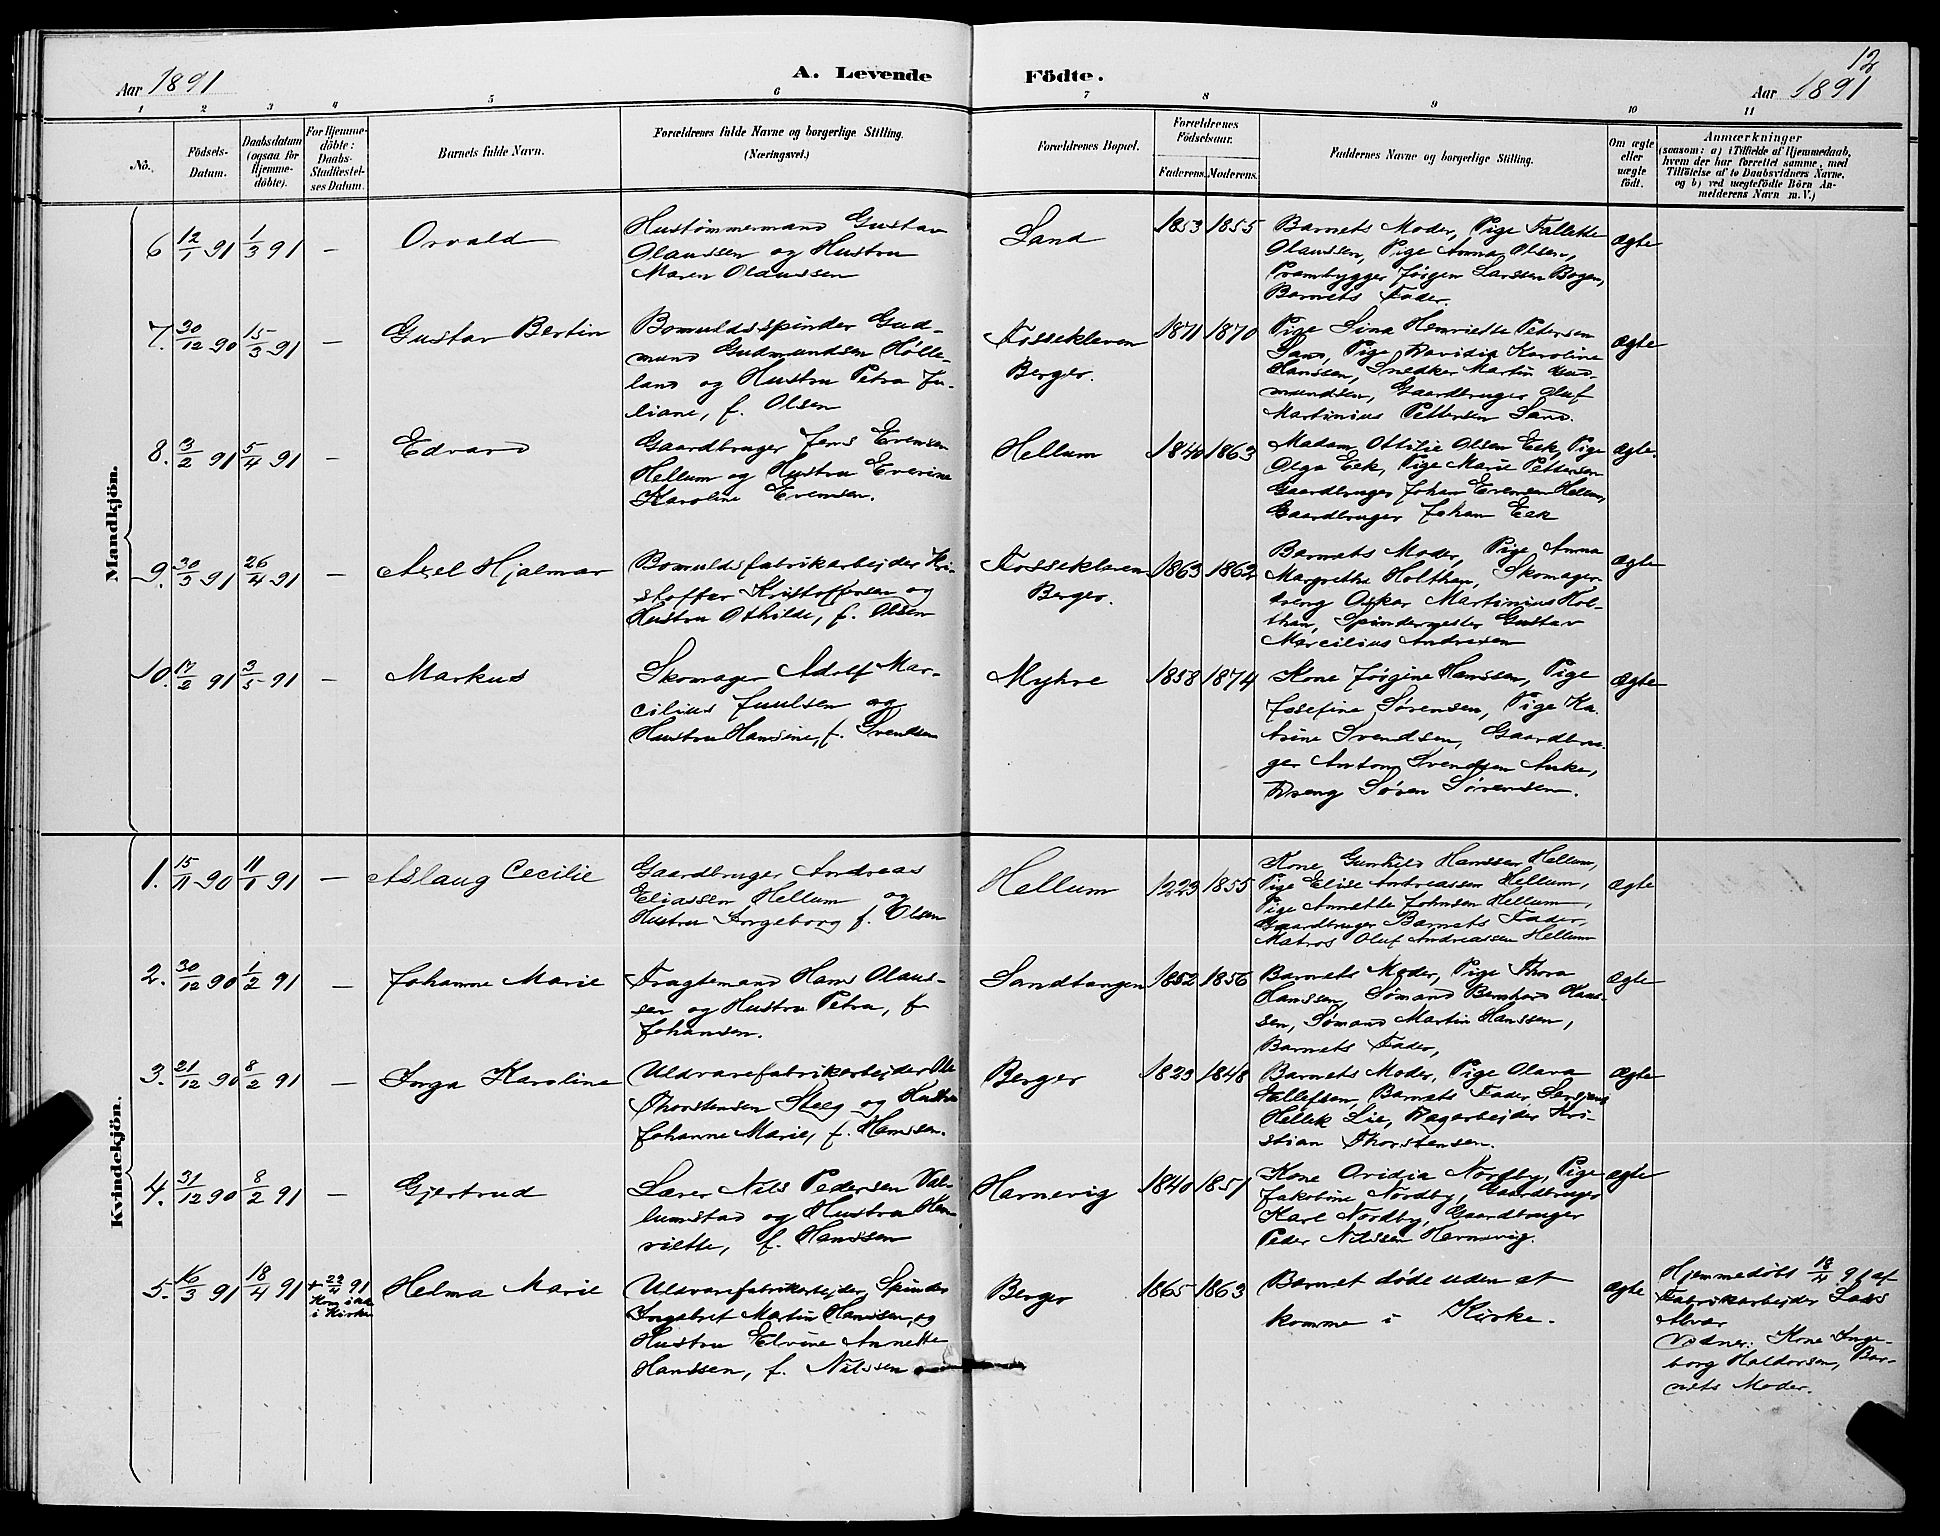 12
Aar 1891
A. Levende Födte.
Aar 1891
1 2 3 4 5 6 7 8 9 10 11
No.
Födsels-Datum.
Daabsdatum (ogsaa för Hjemme-döbte).
For Hjemme-döbte: Daabs-Stadfæstel-ses Datum.
Barnets fulde Navn.
Forældrenes fulde Navne og borgerlige Stilling.
(Næringsvei.)
Forældrenes Bopæl.
Forældrenes Födselsaar.
Faderens. Moderens.
Faddernes Navne og borgerlige Stilling.
Om ægte eller uægte födt.
Anmærkninger
(saasom: a) i Tilfælde af Hjemmedaab, hvem der har forrettet samme, med Tilföielse af to Daabsvidners Navne, og b) ved uægtefödte Börn An-melderens Navn m.V.)
Mandkjön.
6 12/1 91 1/3 91 — Osvald
Hustømmermand Gustav
Olaussen og Hustru
Maren Olaussen
Sand 1853 1855
Barnets Moder, Pige Tallette
Olaussen, Pige Anna Olsen,
Prambygger Jørgen Larssen Bogen,
Barnets Fader.
Ægte
7. 30/12 90 15/3 91 — Gustav Bertin
Bomuldsspinder Gud-
mund Gudmundsen Hølle-
land og Hustru Petra Ju-
liane, f. Olsen
Fossekleven
Berger.
1871 1870
Pige Lina Henriette Petersen
Sand, Pige Davidia Karoline
Hanssen, Snedker Martin Gud-
mundsen, Gaardbruger Oluf
Martinius Pettersen Sand.
Ægte
8. 3/2 91 5/4 91 — Edvard
Gaardbruger Jens Evensen
Hellum og Hustru Everine
Karoline Evensen.
Hellum 1840 1863
Madam Ottilie Olsen Eek, Pige
Olga Eek, Pige Marie Pettersen
Gaardbruger Johan Evensen Hellum,
Gaardbruger Johan Eek
Ægte.
9. 30/3 91 26/4 91 — Axel Hjalmar
Bomuldsfabrikarbejder Kri-
stoffer Kristoffersen og
Hustru Othilde, f. Olsen
Fossekleven
Berger.
1863 1862
Barnets Moder, Pige Anna
Margrethe Holthan, Skomager-
dreng Oskar Martinius Hol-
than, Spindermester Gustav
Marcilius Andresen
Ægte
10. 17/2 91 3/5 91 — Markus
Skomager Adolf Mar-
cilius Juulsen og
Hustru Hansine, f. Svendsen
Myhre 1858 1874
Kone Jørgine Hanssen, Pige
Josefine Sørensen, Pige Ka-
trine Svendsen, Gaardbru-
ger Anton Svendsen Anke,
Dreng Søren Sørensen.
Ægte
Kvindekjön.
1. 15/11 90 11/1 91 — Aslaug Cecilie
Gaardbruger Andreas
Eliassen Hellum og
Hustru Ingeborg f. Olsen
Hellum 1223 1855
Kone Gunhild Hanssen Hellum,
Pige Elise Andreassen Hellum,
Pige Annette Johnsen Hellum,
Gaardbruger Barnets Fader,
Matros Oluf Andreassen Hellum
Ægte
2. 30/12 90 1/2 91 — Johanne Marie
Fragtemand Hans Olaus-
sen og Hustru Petra, f.
Johansen.
Sandtangen 1852 1856
Barnets Moder, Pige Thora
Hanssen, Sømand Bernhard Hans-
sen, Sømand Martin Hanssen,
Barnets Fader,
Ægte
3. 21/12 90 8/2 91 — Inga Karoline
Uldvarefabrikarbejder Ole
Thorstensen Steeg og Hustru
Johanne Marie, f. Hanssen.
Berger 1823 1848
Barnets Moder, Pige Olava
Tallefsen, Barnets Fader,
Hellek Lie, Dagarbejder Kri-
stian Thorstensen.
Ægte
4. 31/12 90 8/2 91 — Gjertrud
Lærer Nils Pedersen Val-
lumstad og Hustru Hen-
riette, f. Hanssen
Havnevig 1840 1851
Kone Ovidia Nordby, Pige
Jakobine Nordby, Gaardbruger
Karl Nordby, Gaardbruger
Peder Nilssen Hernevig.
Ægte
5. 16/3 91 18/4 91 + 22/4 91
Kom ikke
i Kirke
Helma Marie
Uldvarefabrikarbejder, Spinder
Ingebret Martin Hanssen, og
Hustru Elvine Annette
Hanssen, f. Nilssen
Berger 1865 1863
Barnet døde uden at
komme i Kirke.
Ægte
Hjemmedøbt 18/4 91 af
Fabrikarbejder Lars
Alvær
Vidner: Kone Inge-
borg Haldorsen, Bar-
nets Moder.